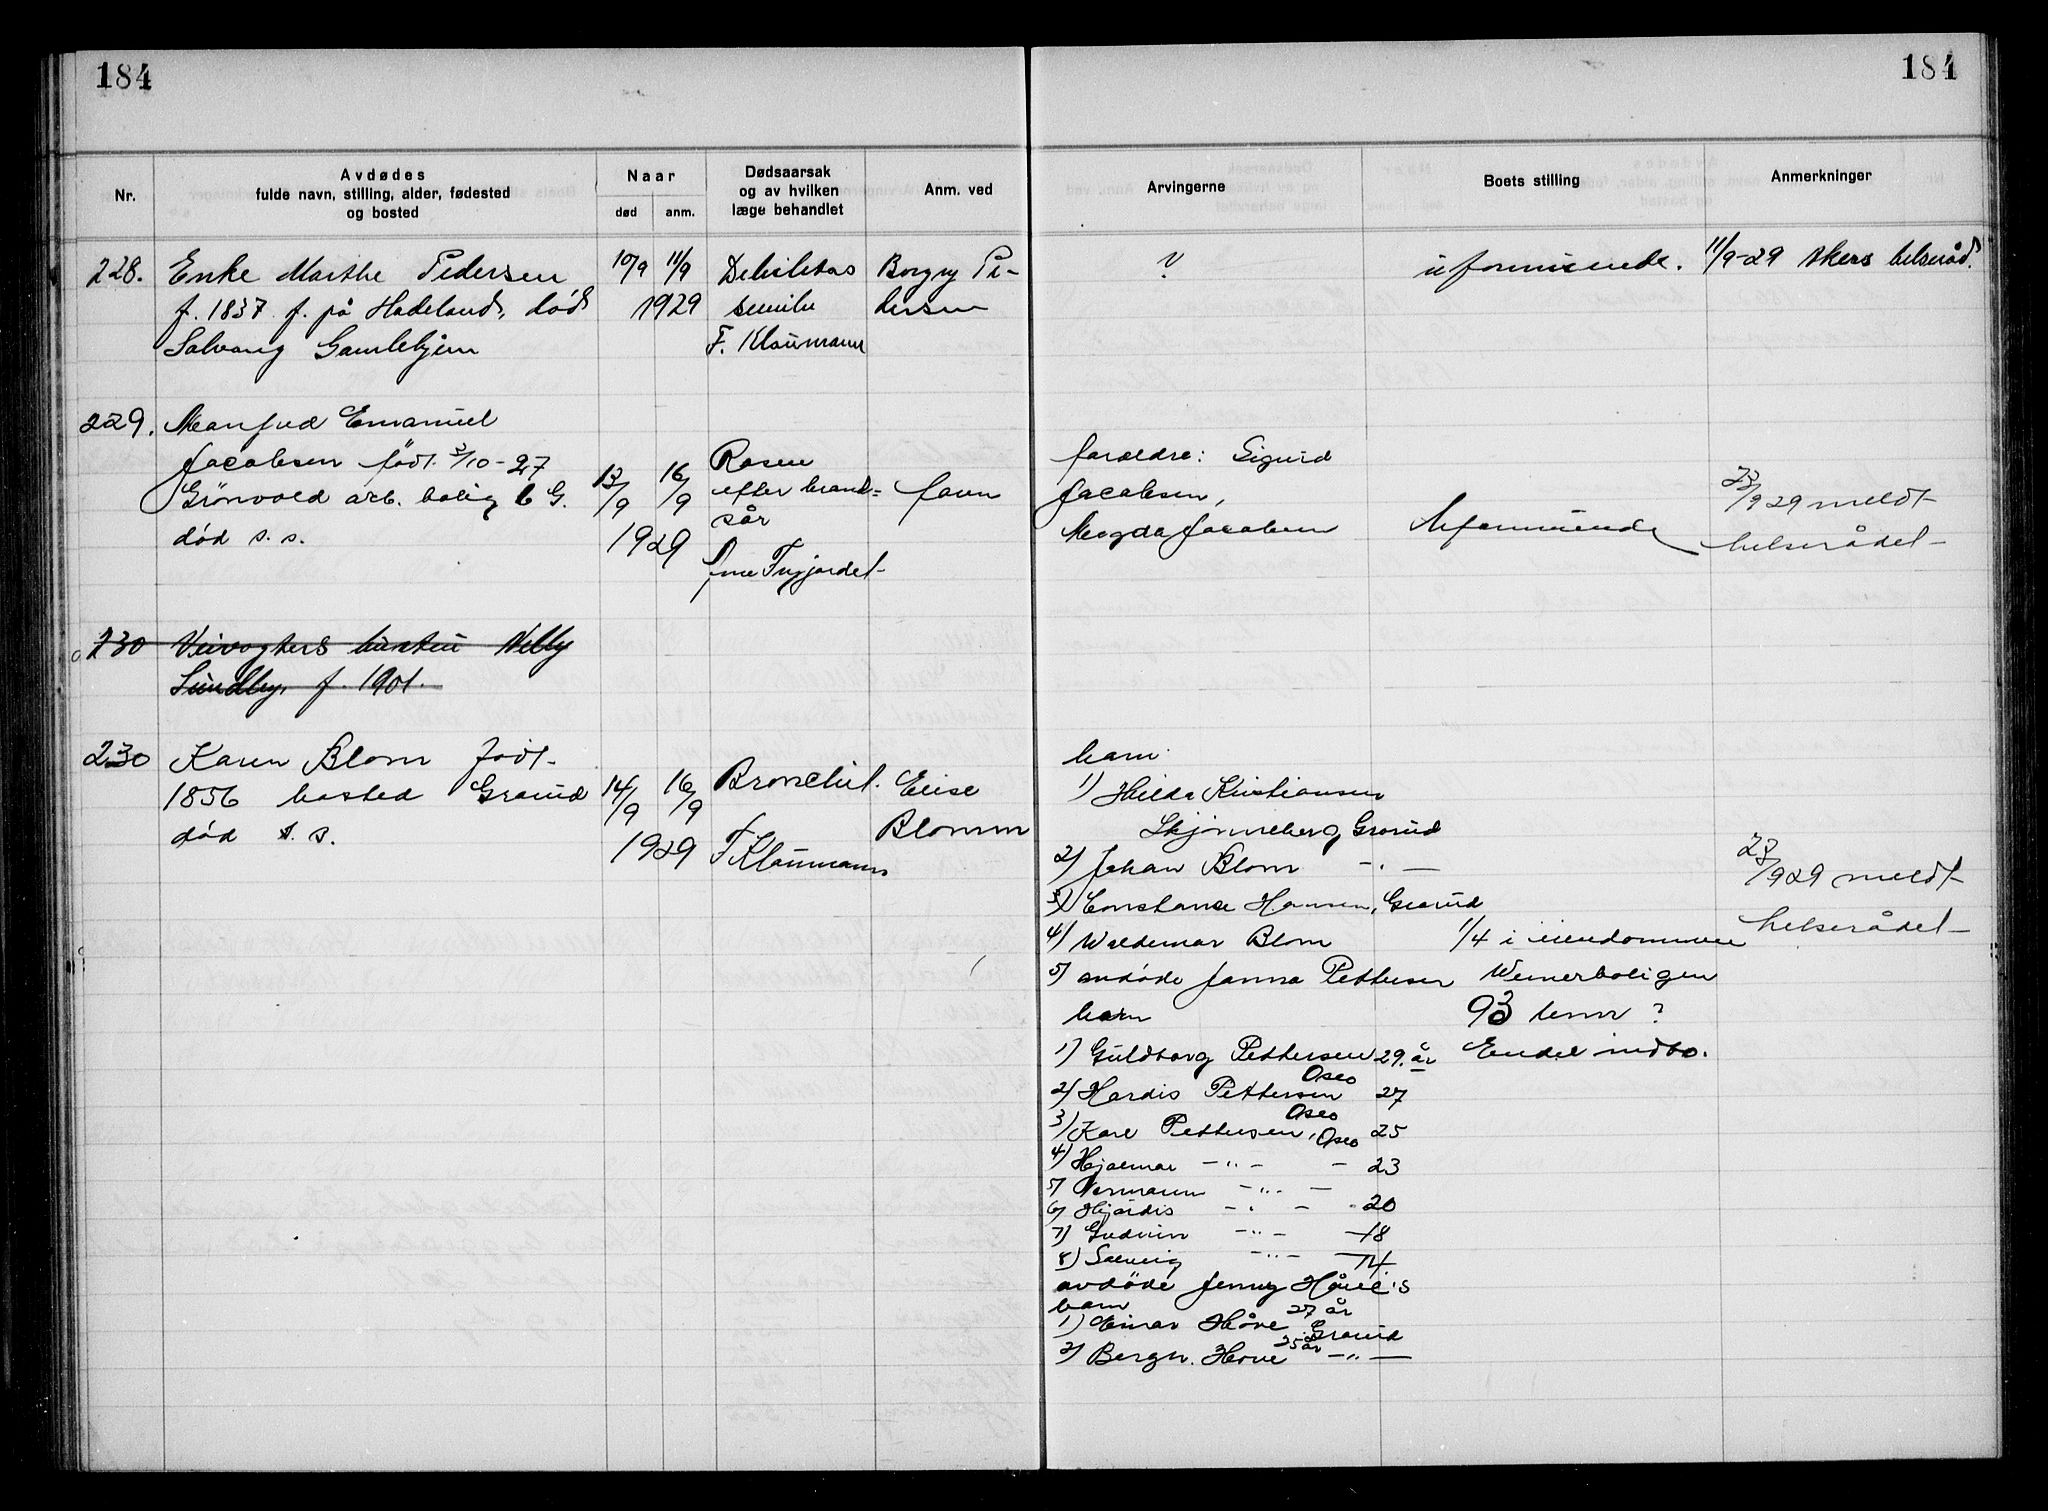 184
184
Nr.
Avdødes
fulde navn, stilling, alder, fødested
og bosted
Naar
død
anm.
Dødsaarsak
og av hvilken
læge behandlet
Anm. ved
Arvingerne
Boets stilling
Anmerkninger
228. Enke Marthe Pedersen 10/9 11/9 Debilitas Borgny Pe- ? uformuende. 11/9-29 Akers helseråd.
f. 1837 f. på Hadeland, død 1929 senilis dersen
Solvang Gamlehjem F. Klaumann
229. Manfred Emanuel
Jacobsen født 3/10-27 13/9 16/9 Rosen foreldre: Sigurd
Grönvold arb. bolig 6 G. efter brand= faren Jacobsen, 23/9 29 meldt
død s. s. 1929 sår Magda Jacobsen Uformuende helserådet
230 Veivogters hustru Nelly
Sundby, f. 1901.
230 Karen Blom født
1856 bosted Grorud 14/9 16/9 Bronchit. Elise
død s. s. Blomm
1929 F Klaumann
barn:
1) Hilda Kristiansen
Skjönneberg Grorud
2) Johan Blom — " —
3) Constanse Hansen, Grorud
4) Waldemar Blom
5) avdöde Janna Pettersen
barn
1) Guldborg Pettersen 29. år
Oslo
2) Hardis Pettersen 27
Oslo
3) Kare Pettersen, Oslo 25
4) Hjalmar — " — — 23
5) Normann — " — —
6) Hjördis — " — — 20
7) Gudrun — " — — 18
8) Solveig — " — — 14
avdöde Jenny Håve's
barn
1) Einar Håve 27 år
Grorud
2) Bergh. Hove 25 år — " —
1/4 i eiendommen
Wernerboligen
93 bnr ?
Endel indbo.
23/9 29 meldt
helserådet